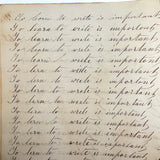 To learn to write is important,
To learn to write is important,
To learn to write is important,
To learn to write is important,
To lern to write is important,
To lern to write is important,
To lern to write is important,
To lern to write is important,
To lern to write is important,
To lern to write is important,
To lern to write is important,
To lern to write is important